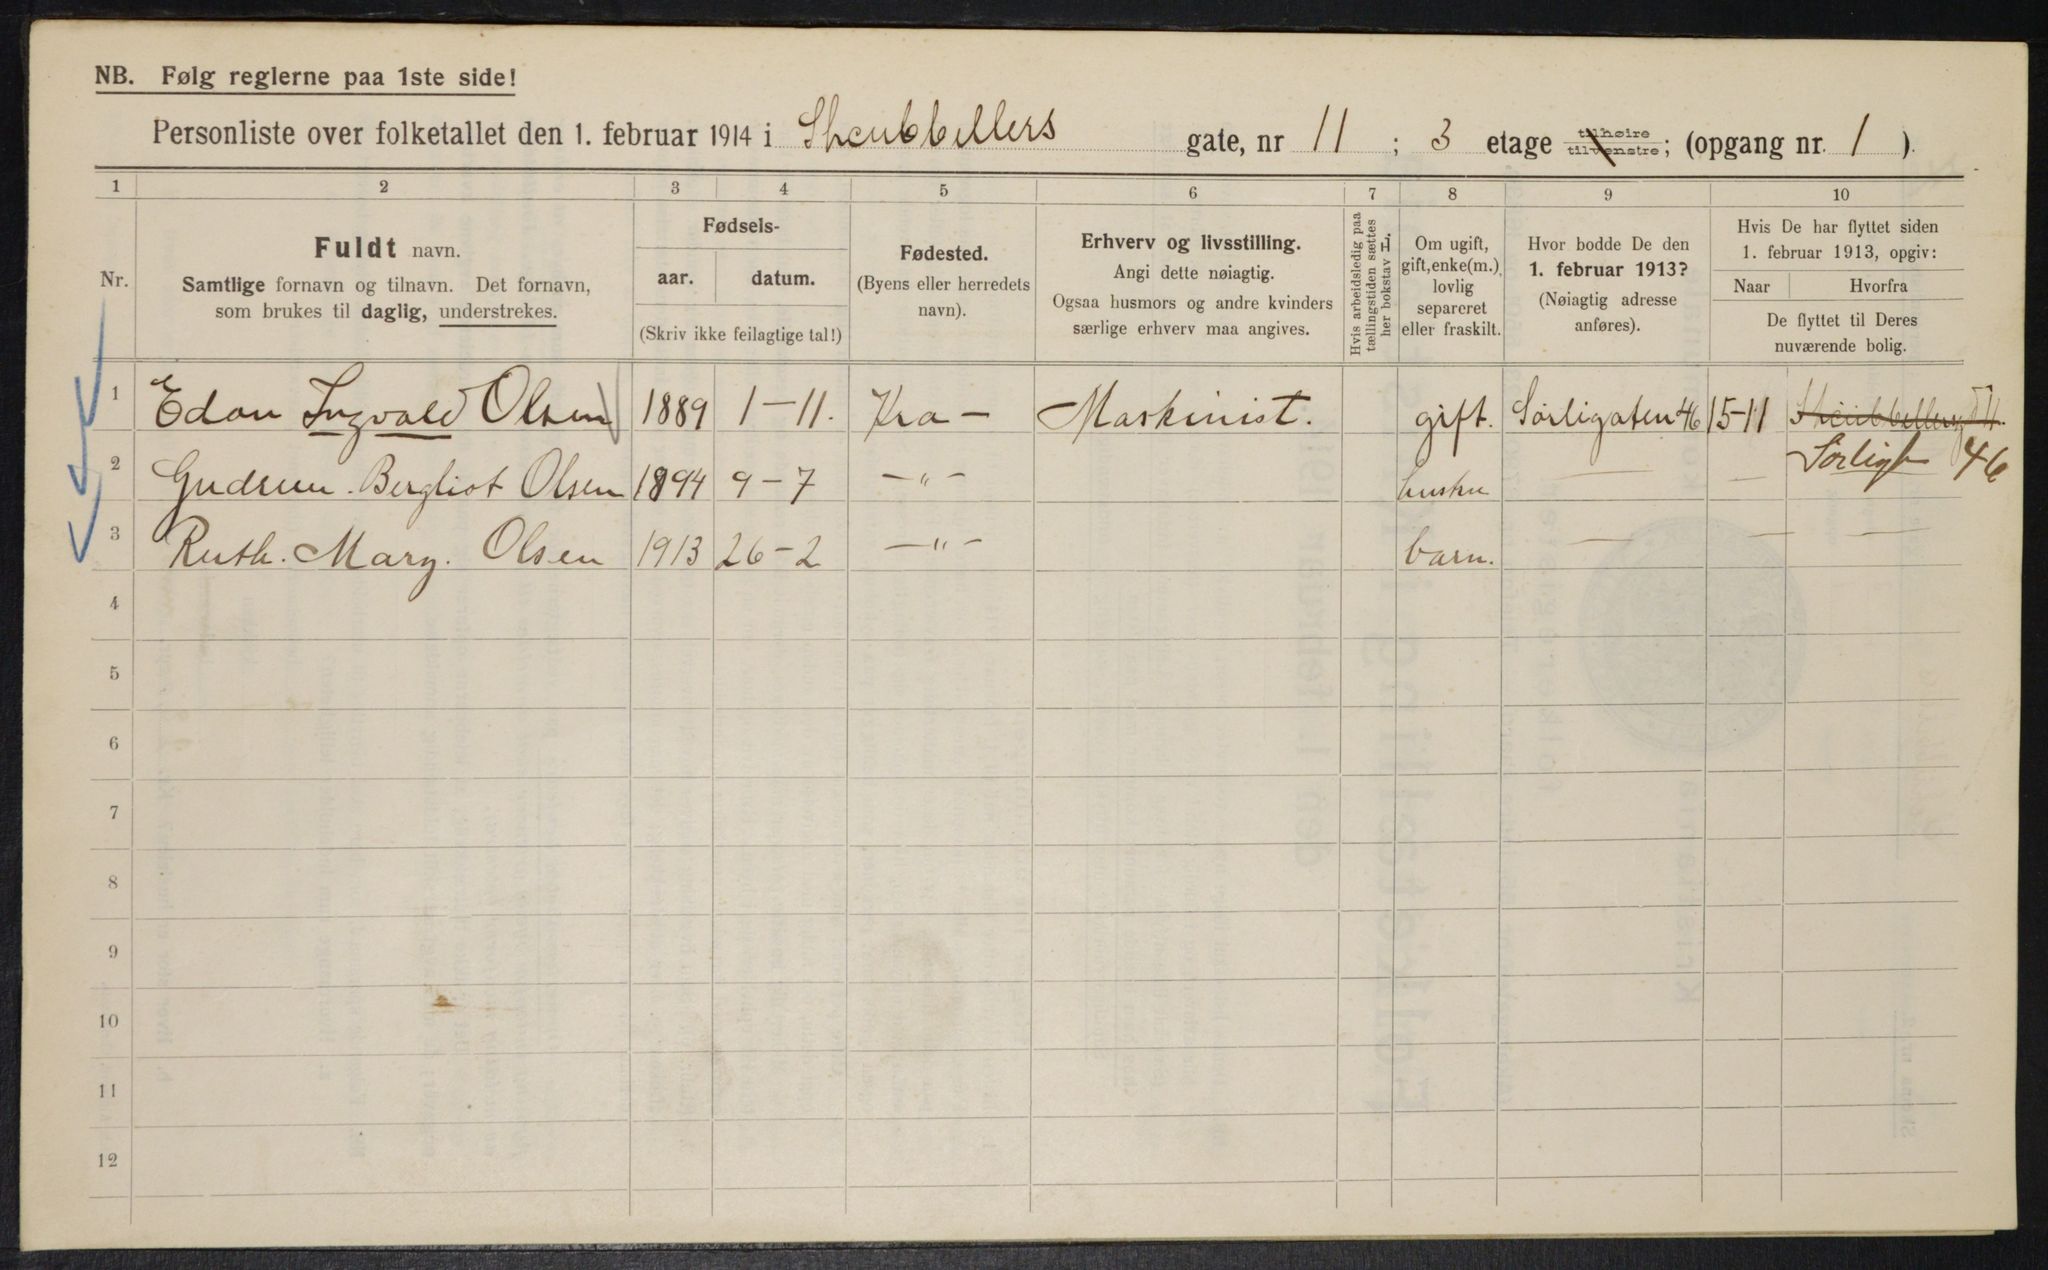 NB. Følg reglerne paa 1ste side!
Personliste over folketallet den 1. februar 1914 i Schubbellers gate, nr 11 ; 3 etage tilhøire tilvenstre; (opgang nr. 1 ).
1 2 3 4 5 6 7 8 9 10
Nr.
Fuldt navn.
Samtlige fornavn og tilnavn. Det fornavn,
som brukes til daglig, understrekes.
Fødsels-
aar. datum.
(Skriv ikke feilagtige tal!)
Fødested.
(Byens eller herredets
navn).
Erhverv og livsstilling.
Angi dette nøiagtig.
Ogsaa husmors og andre kvinders
særlige erhverv maa angives.
Hvis arbeidsledig paa
tællingstiden sættes
her bokstav L.
Om ugift,
gift, enke(m.),
lovlig
separeret
eller fraskilt.
Hvor bodde De den
1. februar 1913?
(Nøiagtig adresse
anføres).
Hvis De har flyttet siden
1. februar 1913, opgiv:
Naar Hvorfra
De flyttet til Deres
nuværende bolig.
1 Edon Ingvald Olsen 1889 1-11. Kra - Maskinist. gift. Sørligaten 46 15-11
Sørligt 46
2 Gudrun. Bergliot Olsen 1894 9-7 -"- hustru — —
3 Ruth. Mary. Olsen 1913 26-2 -"- barn. — — —
4
5
6
7
8
9
10
11
12